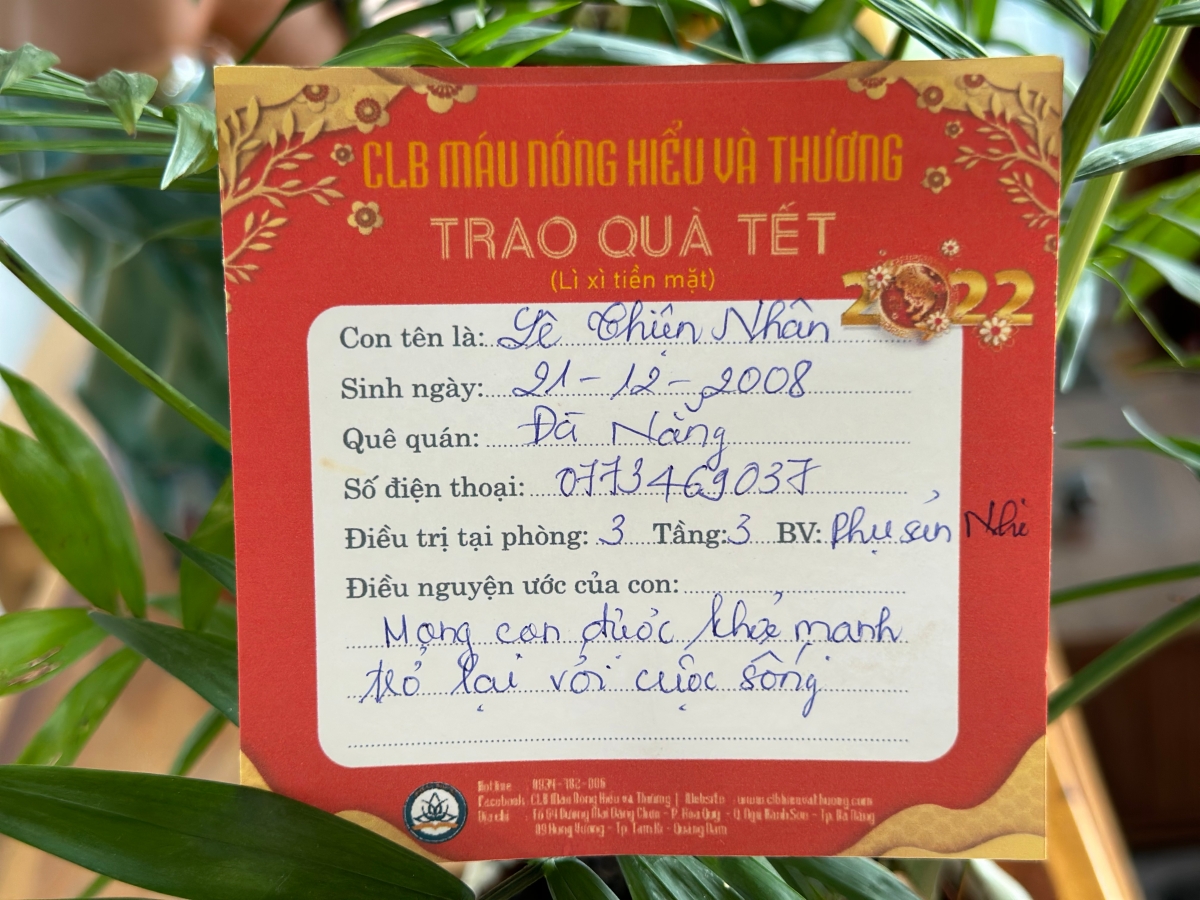 CLB MÁU NÓNG HIỂU VÀ THƯƠNG
TRAO QUÀ TẾT
(Lì xì tiền mặt)
2022
Con tên là: Lê Thiện Nhân
Sinh ngày: 21-12-2008
Quê quán: Đà Nẵng
Số điện thoại: 0773469037
Điều trị tại phòng: 3 Tầng: 3 BV: Phụ sản Nhi
Điều nguyện ước của con:
Mong con được khỏe mạnh
trở lại với cuộc sống
Hotline : 0934-782-006
Facebook : CLB Máu Nóng Hiểu và Thương | Website : www.clbhieuvathuong.com
Địa chỉ : Tổ 64 Đường Mai Đăng Chơn - P. Hòa Quý - Q. Ngũ Hành Sơn - Tp. Đà Nẵng
Hùng Vương - Tp. Tam Kỳ - Quảng Nam